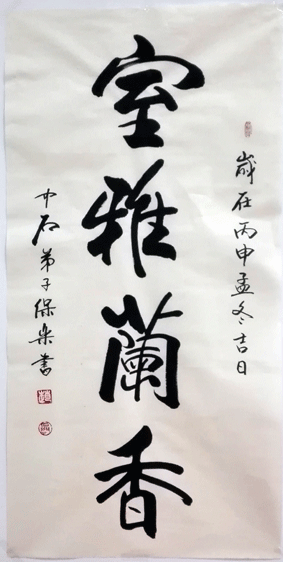 歲在丙申孟冬吉日
室雅蘭香
中石弟子保樂書